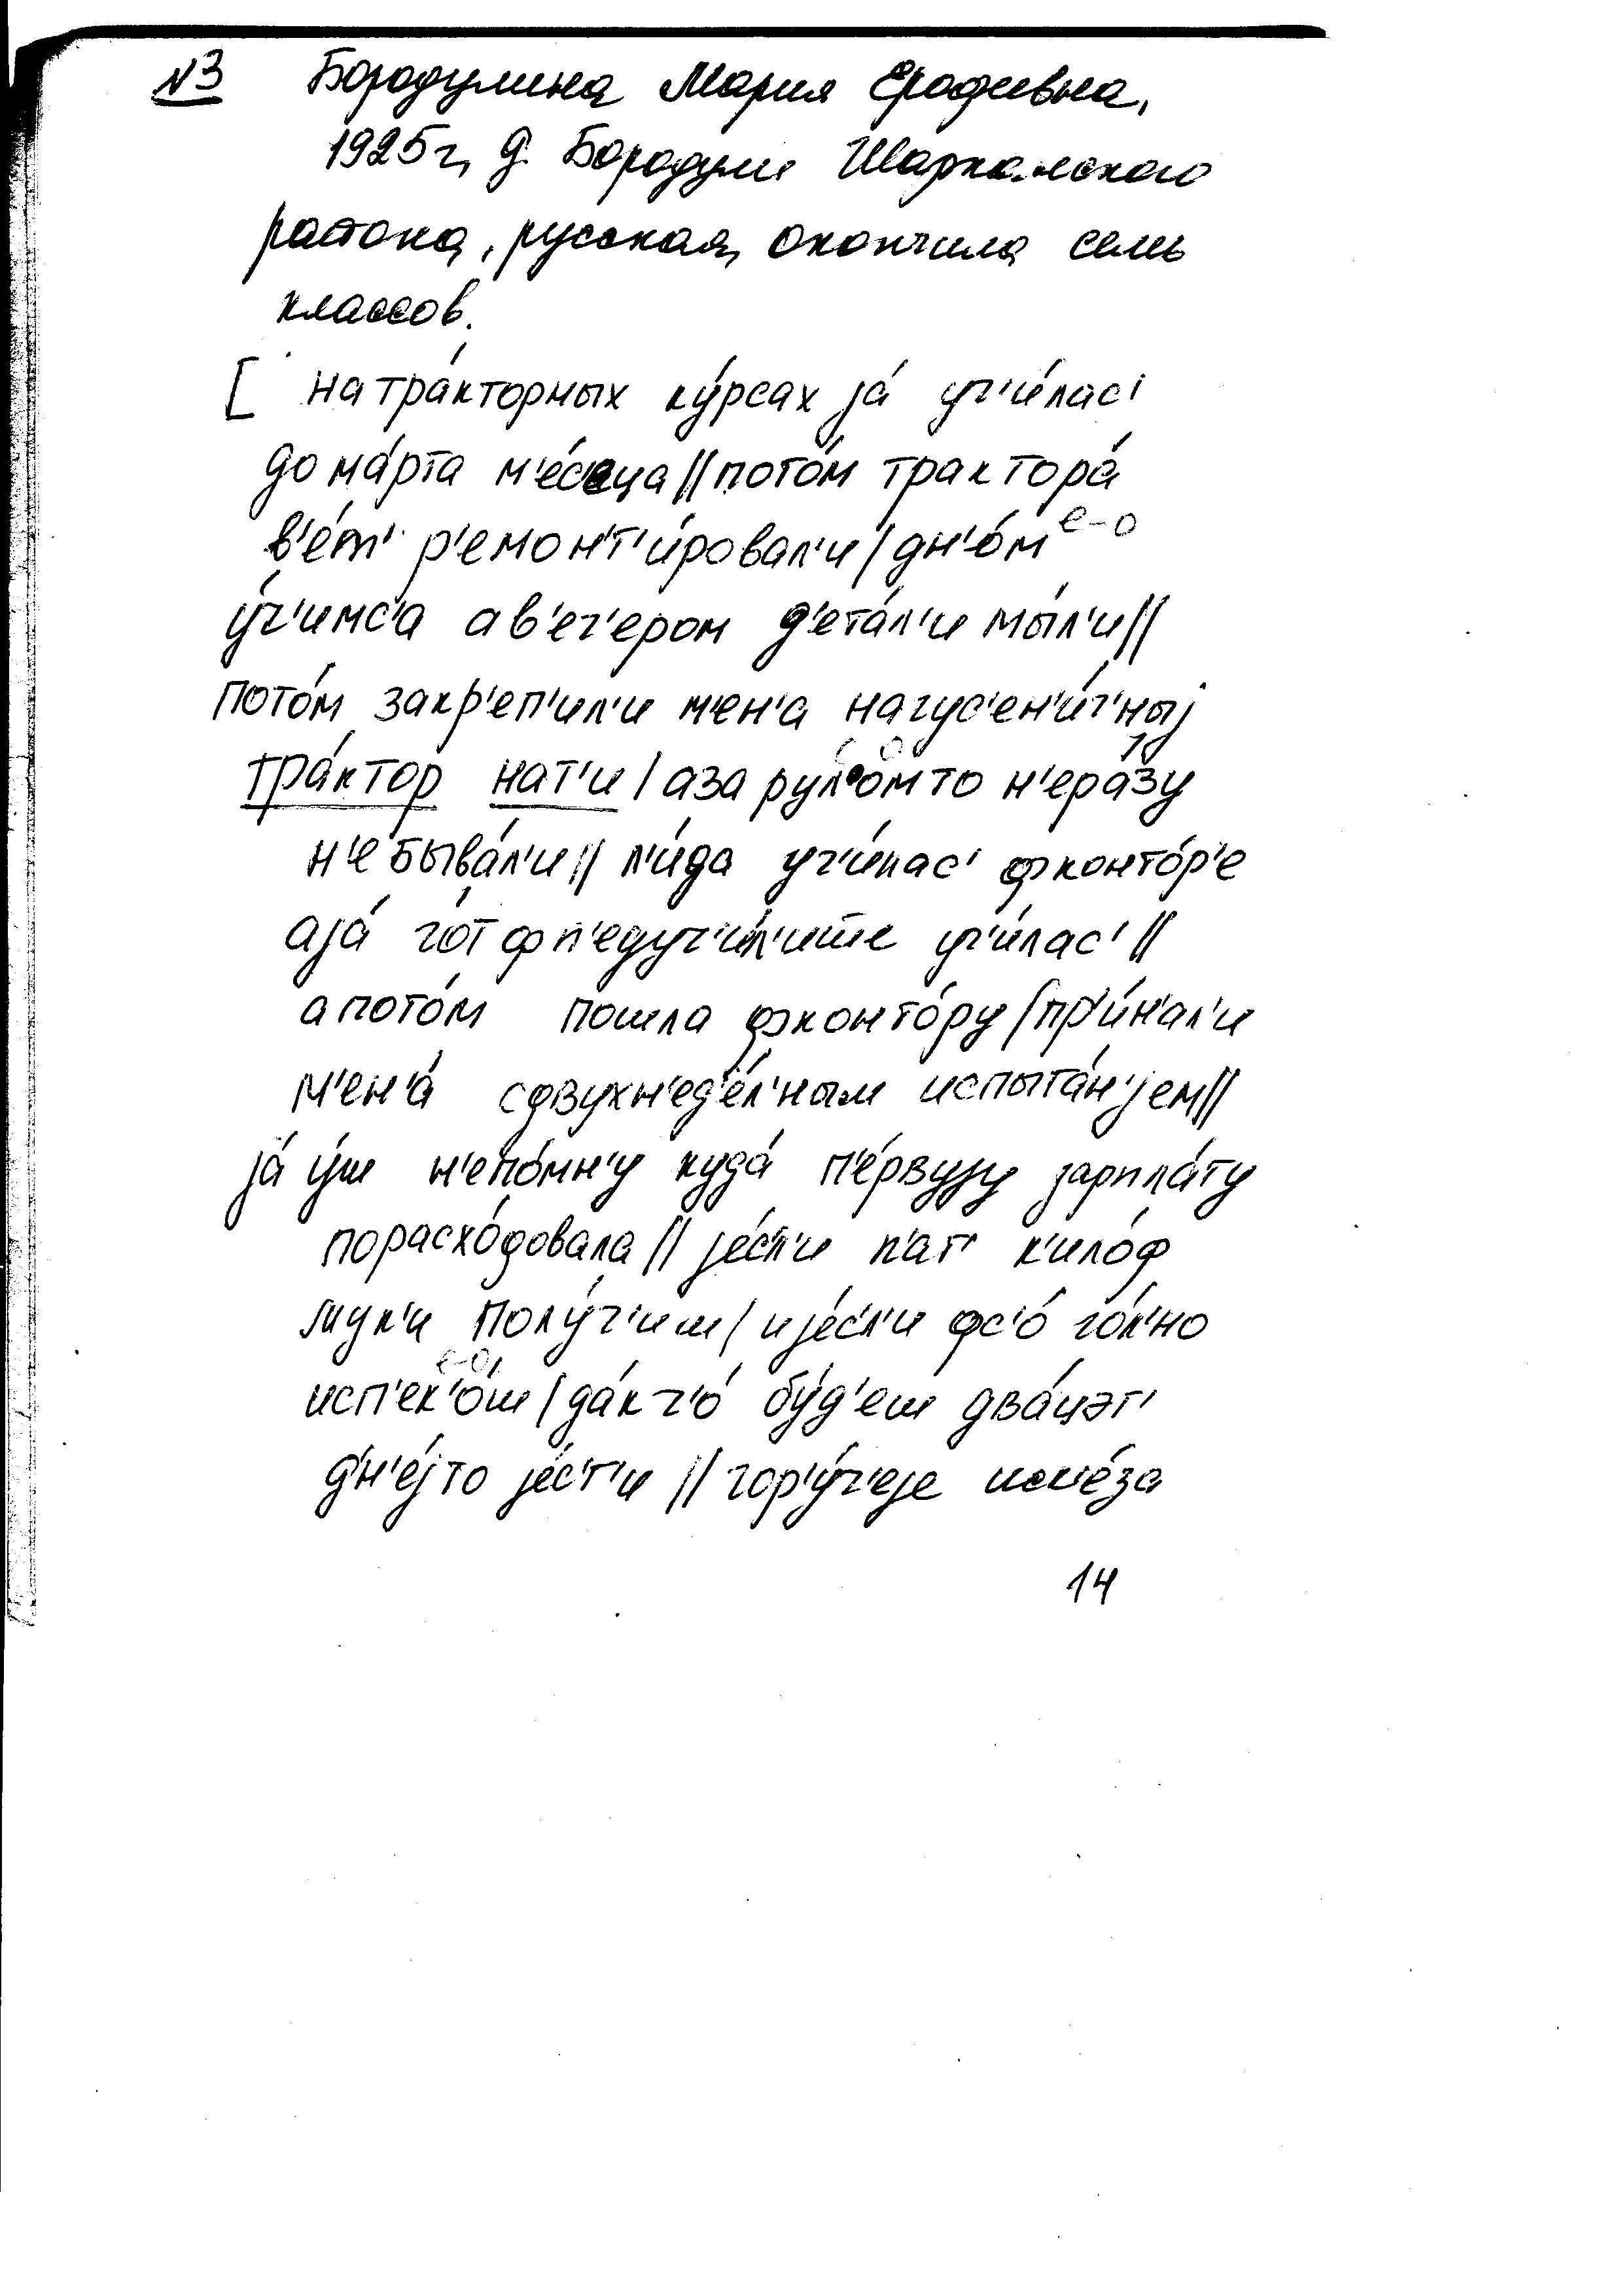 №3 Бородулина Мария Ерофеевна,
1925 г., д. Бородули Шарканского
района, русская, окончила семь
классов.
[ на тра́кторных ку́рсах jа́ уч'и́лас'
до ма́рта м'е́с'еца // пото́м трактора́
в'е́т' р'емонт'и́ровал'и / дн'о́м е-о
у́ч'имс'а а в'еч'ером д'ета́л'и мы́л'и //
пото́м закр'еп'ил'и м'ен'а на гус'ен'и́ч'ныj
тра́ктор нат'и / а за рул'о́м то н'е ра́зу
н'е быва́л'и // л'и́да уч'и́лас' ф конто́р'е
а jа́ го́т ф п'едуч'и́л'ишше уч'и́лас' //
а пото́м пошла ф конто́ру / пр'и́н'ал'и
м'ен'а́ с двухн'ед'е́л'ным испыта́н'jем //
jа́ у́ш н'е по́мн'у куда́ п'е́рвуjу зарпла́ту
порасхо́довала // jе́сл'и п'ат' к'ило́ф
мук'и полу́ч'иш / и jе́сл'и фс'о́ го́л'но
исп'ек'о́ш / да́к ч'о́ бу́д'еш два́цэт'
д'н'е́j то jе́с'т'и // гор'у́ч'еjе
14